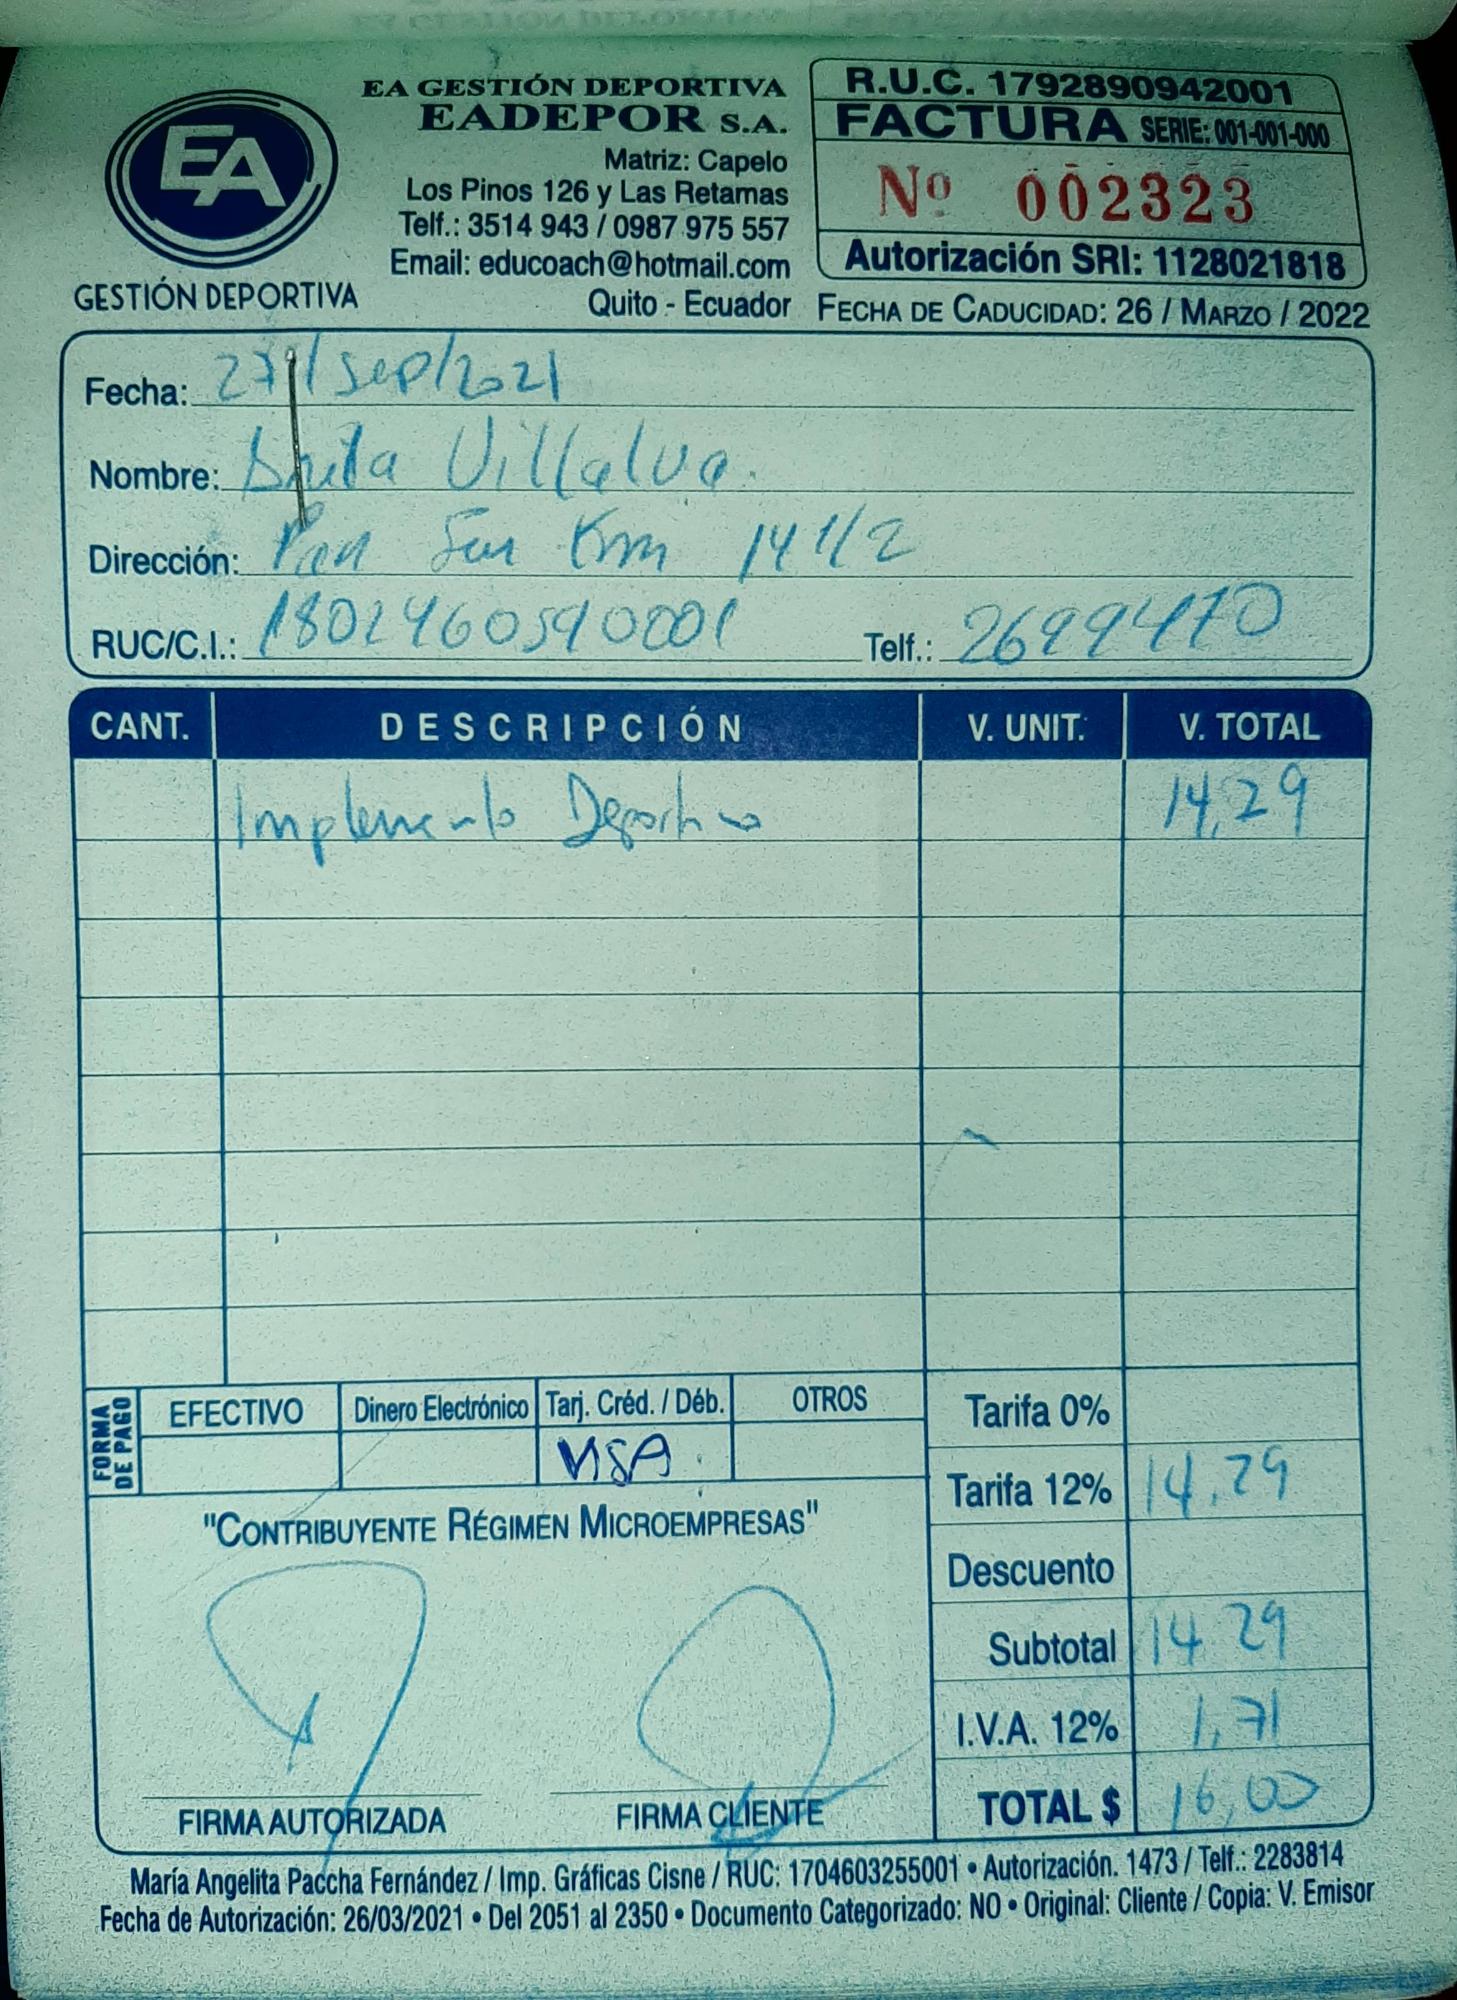 EA
GESTIÓN DEPORTIVA
EA GESTIÓN DEPORTIVA
EADEPOR S.A.
Matriz: Capelo
Los Pinos 126 y Las Retamas
Telf.: 3514 943 / 0987 975 557
Email: educoach@hotmail.com
Quito - Ecuador
R.U.C. 1792890942001
FACTURA SERIE: 001-001-000
Nº 002323
Autorización SRI: 1128021818
FECHA DE CADUCIDAD: 26 / MARZO / 2022
Fecha: 27/Sep/2021
Nombre: Villalva.
Dirección: Pan Sur Km 14 1/2
RUC/C.I.: 1802460590001 Telf.: 2699470
CANT. DESCRIPCIÓN V. UNIT. V. TOTAL
Implemento Deportivo 14,29
FORMA DE PAGO
EFECTIVO Dinero Electrónico Tarj. Créd. / Déb. OTROS
VISA
Tarifa 0%
Tarifa 12% 14.29
Descuento
Subtotal 14.29
I.V.A. 12% 1,71
TOTAL $ 16,00
"CONTRIBUYENTE RÉGIMEN MICROEMPRESAS"
FIRMA AUTORIZADA FIRMA CLIENTE
María Angelita Paccha Fernández / Imp. Gráficas Cisne / RUC: 1704603255001 • Autorización. 1473 / Telf.: 2283814
Fecha de Autorización: 26/03/2021 • Del 2051 al 2350 • Documento Categorizado: NO • Original: Cliente / Copia: V. Emisor